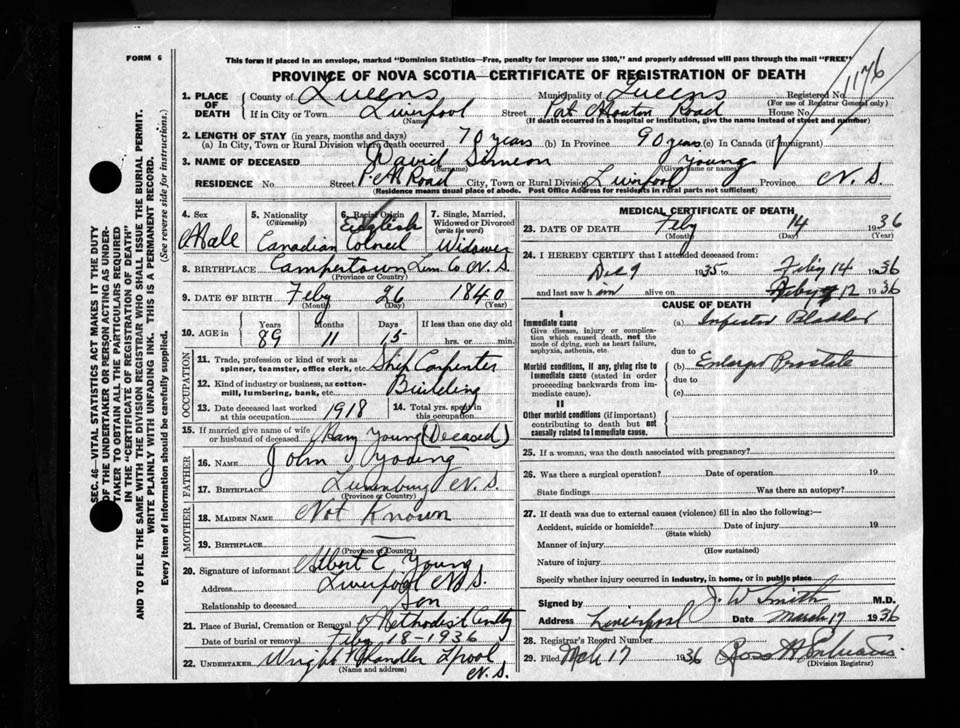 FORM 6
This form if placed in an envelope, marked "Dominion Statistics—Free, penalty for improper use $300," and properly addressed will pass through the mail "FREE"
PROVINCE OF NOVA SCOTIA—CERTIFICATE OF REGISTRATION OF DEATH
1176
1. PLACE OF DEATH
County of Queens Municipality of Queens Registered No.
(For use of Registrar General only)
If in City or Town Liverpool Street Port Mouton Road House No.
(Name) (If death occurred in a hospital or institution, give the name instead of street and number)
2. LENGTH OF STAY (in years, months and days)
(a) In City, Town or Rural Division where death occurred 70 years (b) In Province 90 years (c) In Canada (if immigrant)
3. NAME OF DECEASED David Simeon Young
(Surname) (Given name or names)
RESIDENCE No. Street P. M. Road City, Town or Rural Division Liverpool Province N. S.
(Residence means usual place of abode. Post Office Address for residents in rural parts not sufficient)
4. Sex Male
5. Nationality (Citizenship) Canadian
6. Racial Origin English Colored
7. Single, Married, Widowed or Divorced (write the word) Widower
8. BIRTHPLACE Campertown Lun. Co. N. S.
(Province or Country)
9. DATE OF BIRTH Feby 26 1840
(Month) (Day) (Year)
10. AGE in Years Months Days If less than one day old
89 11 15 hrs. or min.
OCCUPATION
11. Trade, profession or kind of work as spinner, teamster, office clerk, etc. Ship Carpenter
12. Kind of industry or business, as cotton-mill, lumbering, bank, etc. Building
13. Date deceased last worked at this occupation 1918
14. Total yrs. spent in this occupation
15. If married give name of wife or husband of deceased Mary Young (Deceased)
FATHER
16. NAME John Young
17. BIRTHPLACE Lunenburg N. S.
(Province or Country)
MOTHER
18. MAIDEN NAME Not Known
19. BIRTHPLACE —
(Province or Country)
20. Signature of informant Albert E. Young
Address Liverpool N. S.
Relationship to deceased Son
21. Place of Burial, Cremation or Removal Methodist Cemty
Date of burial or removal Feby 18-1936
22. UNDERTAKER Wright Chandler Lpool N. S.
(Name and address)
MEDICAL CERTIFICATE OF DEATH
23. DATE OF DEATH Feby 14 1936
(Month) (Day) (Year)
24. I HEREBY CERTIFY that I attended deceased from:
Dec 9 1935 to Feby 14 1936
and last saw him alive on Feby 12 1936
CAUSE OF DEATH
I
Immediate cause
Give disease, injury or complication which caused death, not the mode of dying, such as heart failure, asphyxia, asthenia, etc.
(a) Infected Bladder
due to
Morbid conditions, if any, giving rise to immediate cause (stated in order proceeding backwards from immediate cause).
(b) Enlarged Prostate
due to
(c)
II
Other morbid conditions (if important) contributing to death but not causally related to immediate cause.
25. If a woman, was the death associated with pregnancy?
26. Was there a surgical operation? Date of operation 19
State findings Was there an autopsy?
27. If death was due to external causes (violence) fill in also the following:—
Accident, suicide or homicide? Date of injury 19
(State which)
Manner of injury
(How sustained)
Nature of injury
Specify whether injury occurred in industry, in home, or in public place
Signed by J. W Smith M.D.
Address Liverpool Date March 17 1936
28. Registrar's Record Number
29. Filed Mch 17 1936 Ross
(Division Registrar)
SEC. 46—VITAL STATISTICS ACT MAKES IT THE DUTY
OF THE UNDERTAKER OR PERSON ACTING AS UNDER-
TAKER TO OBTAIN ALL THE PARTICULARS REQUIRED
IN THE "CERTIFICATE OF REGISTRATION OF DEATH"
AND TO FILE THE SAME WITH THE DIVISION REGISTRAR WHO SHALL ISSUE THE BURIAL PERMIT.
WRITE PLAINLY WITH UNFADING INK. THIS IS A PERMANENT RECORD.
Every item of Information should be carefully supplied. (See reverse side for instructions.)